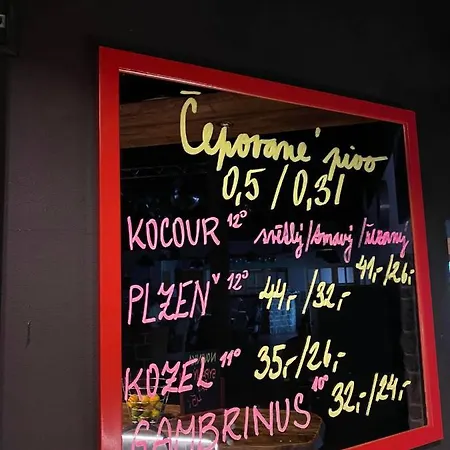 Čepované pivo
0,5/0,3l
KOCOUR 12° světlý/tmavý/řezaný
41,-/26,-
PLZEŇ 12° 44,-/32,-
KOZEL 11° 35,-/26,-
GAMBRINUS 10° 32,-/24,-